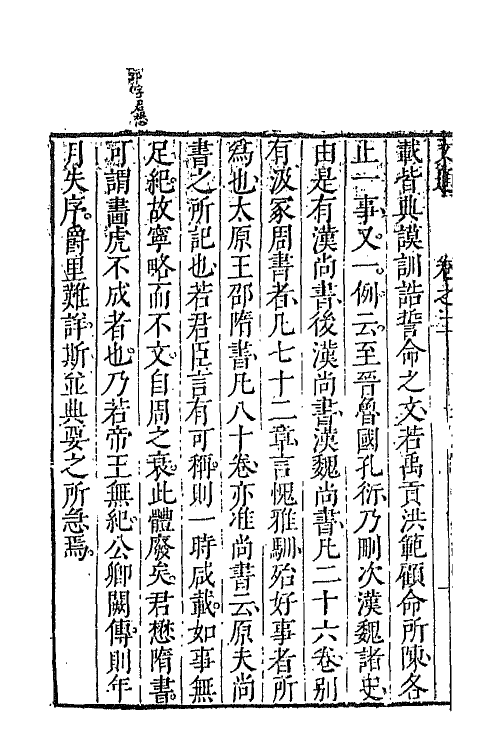 卷之
載皆典謨訓誥誓命之文、若禹貢洪範顧命所陳、各
止一事、又一例云。至晉魯國孔衍、乃刪次漢魏諸史、
由是有漢尚書、後漢尚書、漢魏尚書、凡二十六卷、別
有汲冢周書者、凡七十二章、言愧雅馴、殆好事者所
爲也。太原王邵隋書、凡八十卷、亦准尚書云。原夫尚
書之所記也、若君臣言有可稱、則一時咸載。如事無
足紀、故寧略而不文。自周之衰、此體廢矣。君懋隋書、
可謂畫虎不成者也。乃若帝王無紀、公卿闕傳、則年
月失序、爵里難詳、斯並典要之所急焉。
邵字君懋